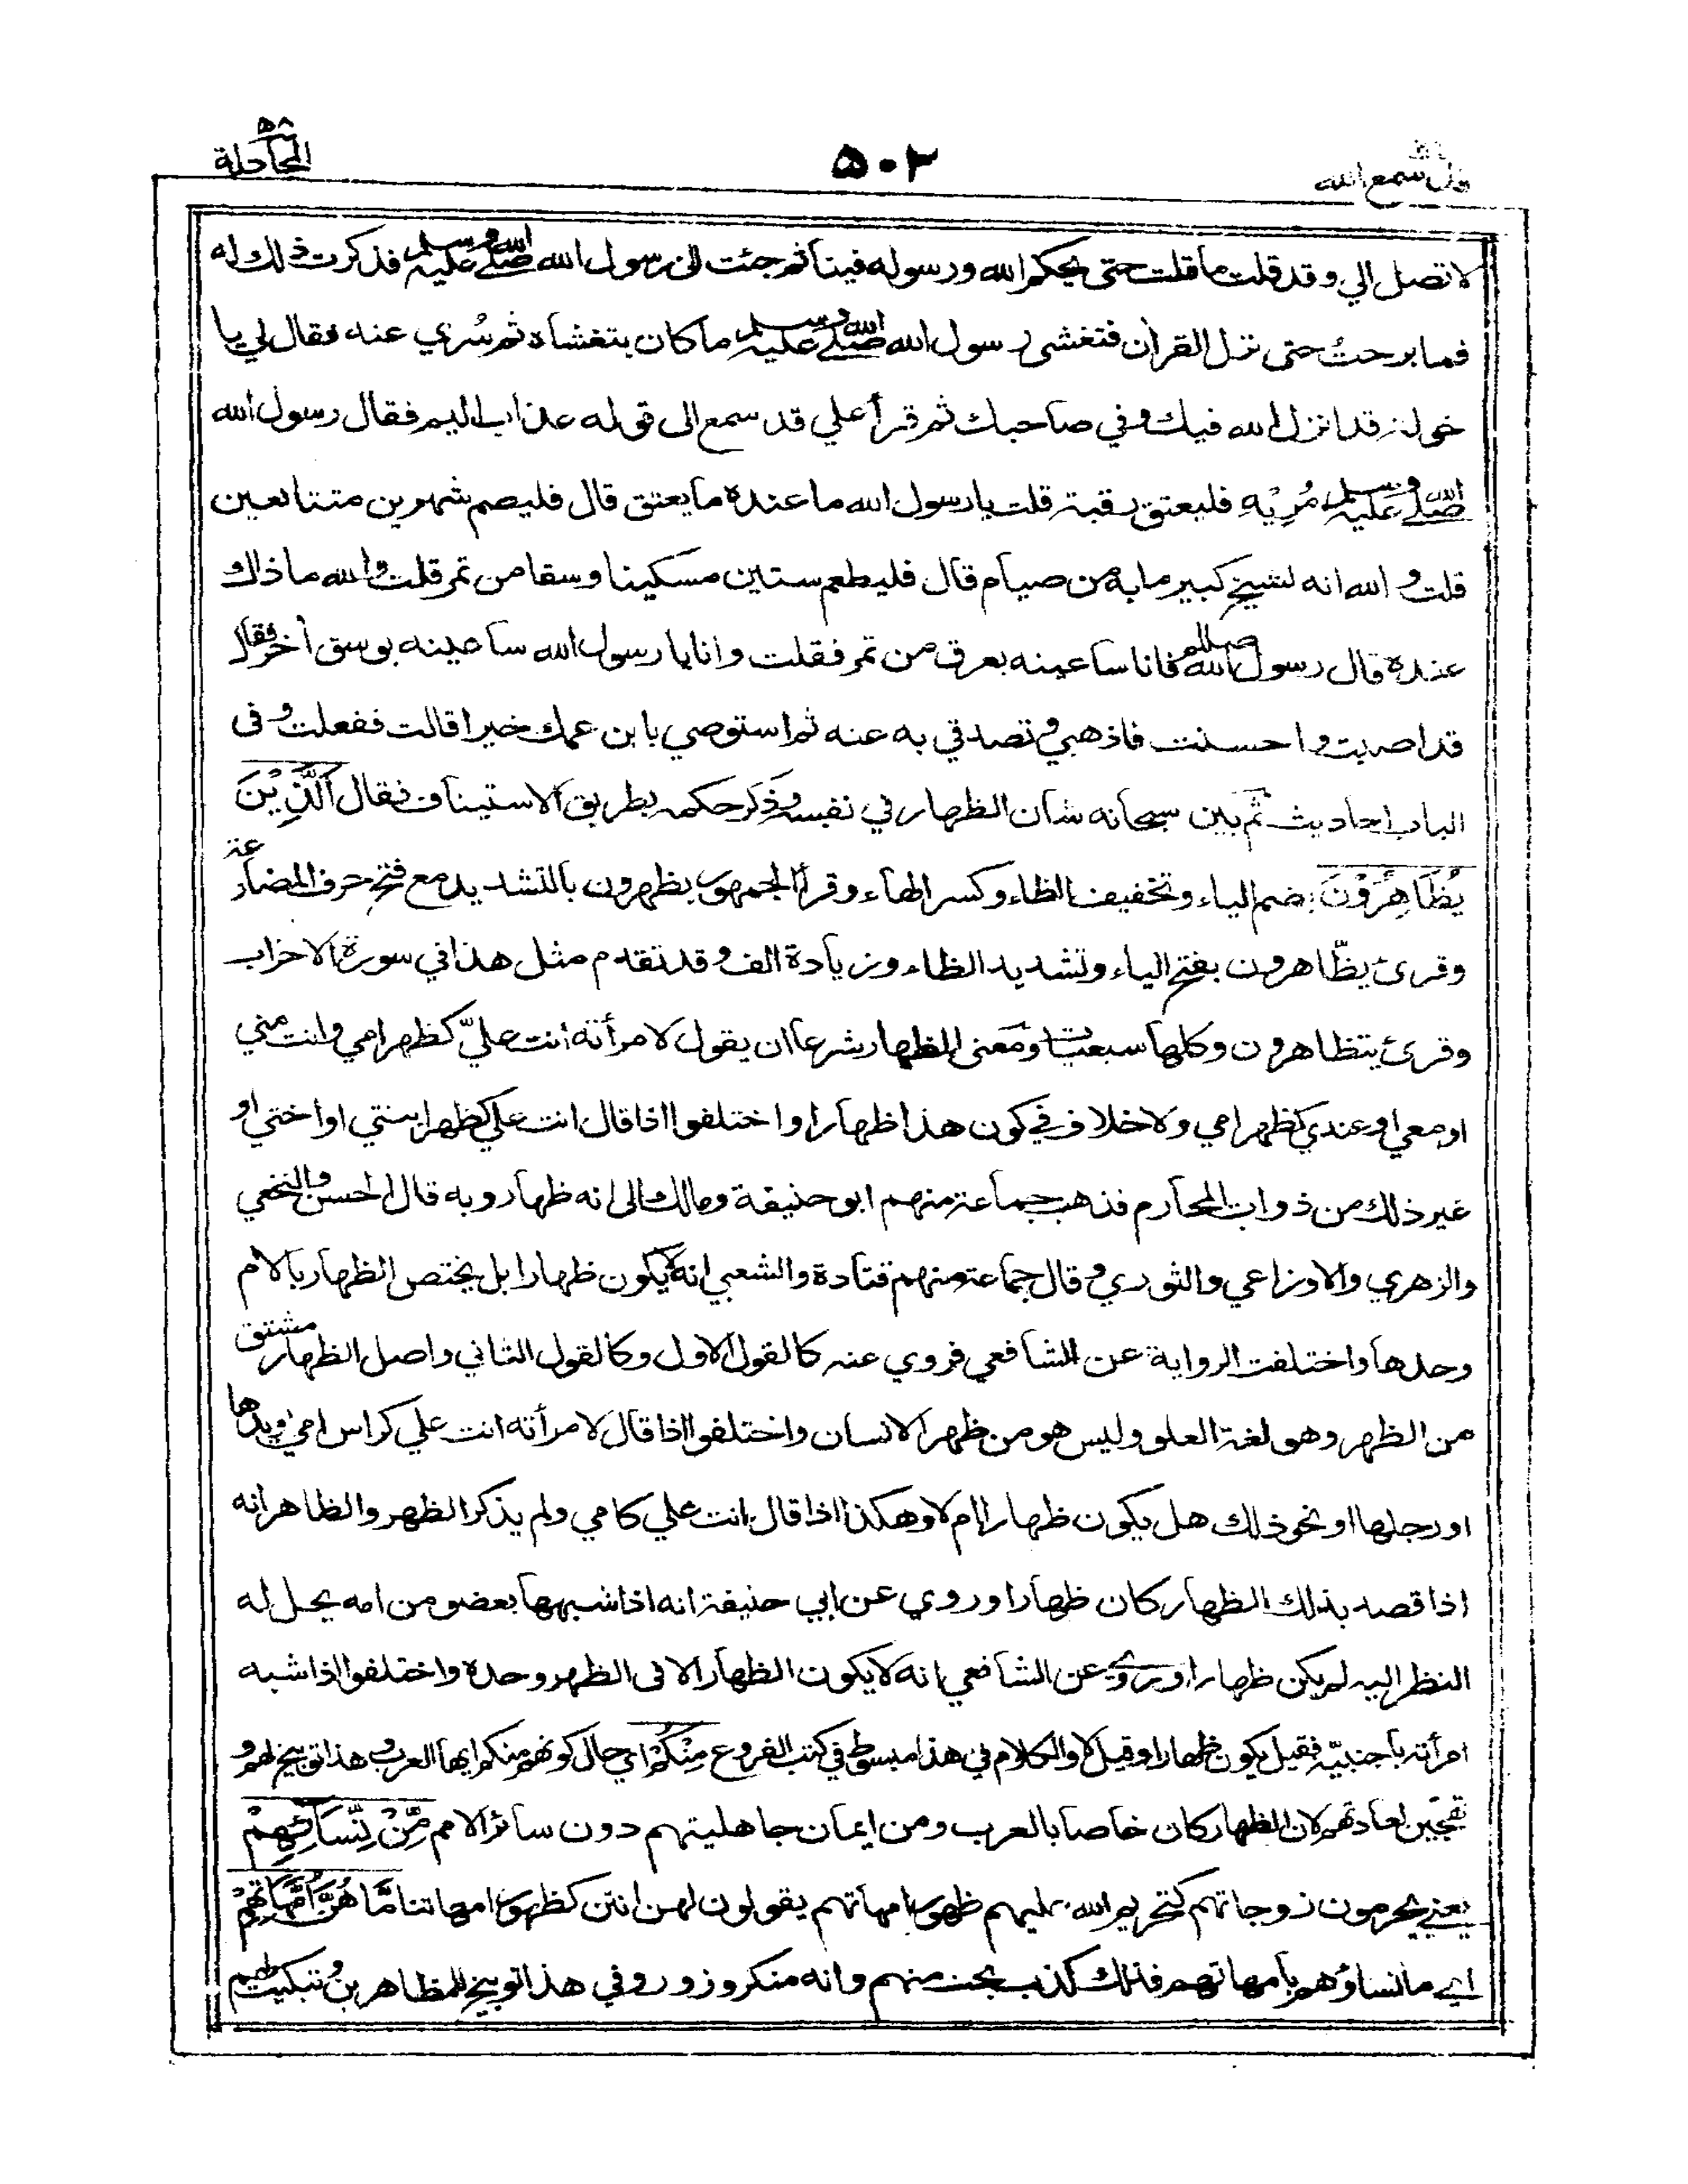 قد سمع الله
٥٠٢
٥٨
المجادلة
لا تصل الي وقد قلت ما قلت حتى يحكم الله ورسوله فينا ثم جئت الى رسول الله صلى الله عليه وسلم فذكرت ذلك له
فما برحتُ حتى نزل القرآن فتغشى رسول الله صلى الله عليه وسلم ما كان يتغشاه ثم سُري عنه فقال لي يا
خولة قد انزل الله فيك وفي صاحبك ثم قرأ علي قد سمع الى قوله عذاب اليم فقال رسول الله
صلى الله عليه وسلم مُرِيْهِ فليعتق رقبة قلت يا رسول الله ما عنده ما يعتق قال فليصم شهرين متتابعين
قلت والله انه لشيخ كبير ما به من صيام قال فليطعم ستين مسكينا وسقا من تمر قلت والله ما ذاك
عنده قال رسول الله صللم فانا ساعينه بعرق من تمر فقلت وانا يا رسول الله ساعينه بوسق أخر فقال
قد اصبت واحسنت فاذهبي وتصدقي به عنه ثم استوصي بابن عمك خيرا قالت ففعلت وفى
الباب احاديث ثم بين سبحانه شأن الظهار في نفسه وذكر حكمه بطريق الاستيناف فقال اَلَّذِيْنَ
يُظَاهِرُوْنَ بضم الياء وتخفيف الظاء وكسر الهاء وقرأ الجمهور يظهرون بالتشديد مع فتح حرف المضارعة
وقرئ يظّاهرون بفتح الياء وتشديد الظاء وزيادة الف وقد تقدم مثل هذا في سورة الاحزاب
وقرئ يتظاهرون وكلها سبعيات ومعنى الظهار شرعا ان يقول لامرأته انت عليّ كظهر امي وانت مني
او معي او عندي كظهر امي ولا خلاف في كون هذا ظهارا واختلفوا اذا قال انت علي كظهر ابنتي او اختي او
غير ذلك من ذوات المحارم فذهب جماعة منهم ابو حنيفة ومالك الى انه ظهار وبه قال الحسن والنخعي
والزهري والاوزاعي والثوري وقال جماعة منهم قتادة والشعبي انه لا يكون ظهارا بل يختص الظهار بالام
وحدها واختلفت الرواية عن الشافعي فروي عنه كالقول الاول وكالقول الثاني واصل الظهار مشتق
من الظهر وهو لغة العلو وليس هو من ظهر الانسان واختلفوا اذا قال لامرأته انت علي كراس امي او يدها
او رجلها او نحو ذلك هل يكون ظهارا ام لا وهكذا اذا قال انت علي كامي ولم يذكر الظهر والظاهر انه
اذا قصد بذلك الظهار كان ظهارا وروي عن ابي حنيفة انه اذا شبهها بعضو من امه يحل له
النظر اليه لم يكن ظهارا وروي عن الشافعي انه لا يكون الظهار الا فى الظهر وحده واختلفوا اذا شبه
امرأته باجنبيّة فقيل يكون ظهارا وقيل لا والكلام في هذا مبسوط في كتب الفروع مِنْكُمْ اي حال كونهم منكم ايها العرب وهذا توبيخ لهم و
تهجين لعادتهم لان الظهار كان خاصا بالعرب ومن ايمان جاهليتهم دون سائر الامم مِّنْ نِّسَائِهِمْ
يعني يحرمون زوجاتهم كتحريم الله عليهم ظهور امهاتهم يقولون لهن انتن كظهور امهاتنا مَّا هُنَّ اُمَّهَاتِهِمْ
اي ما نساؤهم بأمهاتهم فذلك كذب بحت منهم وانه منكر وزور وفي هذا توبيخ للمظاهرين وتبكيت لهم